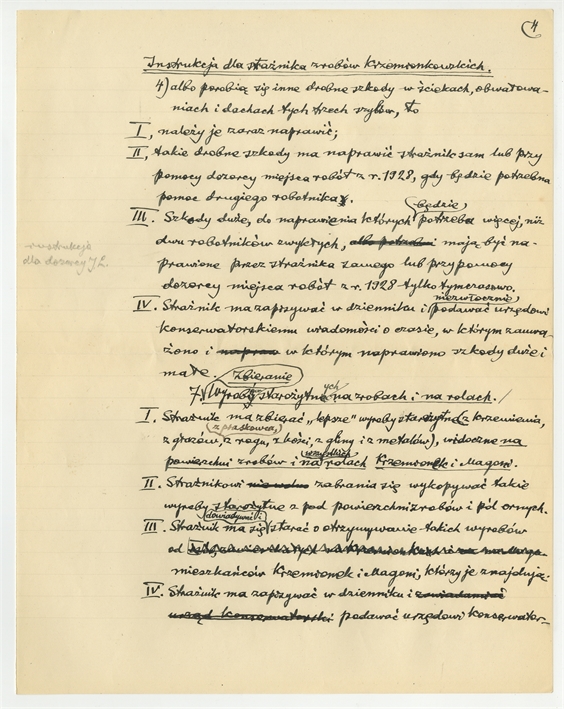 4
Instrukcja dla strażnika zrobów Krzemionkowskich.
4) albo porobią się inne drobne szkody w ściekach, obwałowa-
niach i dachach tych trzech szybów, to
I, należy je zaraz naprawić;
II, takie drobne szkody ma naprawić strażnik sam lub przy
pomocy dozorcy miejsca robót z r. 1928, gdy będzie potrzebna
pomoc drugiego robotnika.
III. Szkody duże, do naprawienia których będzie potrzeba więcej, niż
dwu robotników zwykłych, albo potrzeba mają być na-
prawione przez strażnika samego lub przy pomocy
dozorcy miejsca robót z r. 1928 tylko tymczasowo.
instrukcja
dla dozorcy J.L.
IV. Strażnik ma zapisywać w dzienniku i niezwłocznie podawać urzędowi
konserwatorskiemu wiadomości o czasie, w którym zauwa-
żono i napraw w którym naprawiono szkody duże i
małe.
7, Zbieranie wyrobów starożytnych na zrobach i na rolach.
I. Strażnik ma zbierać „lepsze" wyroby starożytne (z krzemienia,
z piaskowca,
z głazów, z rogu, z kości, z gliny i z metalów), widoczne na
powierzchni zrobów i na wszystkich rolach Krzemionek i Magoni.
II. Strażnikowi nie wolno zabrania się wykopywać takie
wyroby starożytne z pod powierzchni zrobów i pól ornych.
III. Strażnik ma się dowiadywać i starać o otrzymywanie takich wyrobów
od
mieszkańców Krzemionek i Magoni, którzy je znajdują.
IV. Strażnik ma zapisywać w dzienniku i zawiadamiać
urząd konserwatorski podawać urzędowi konserwator-